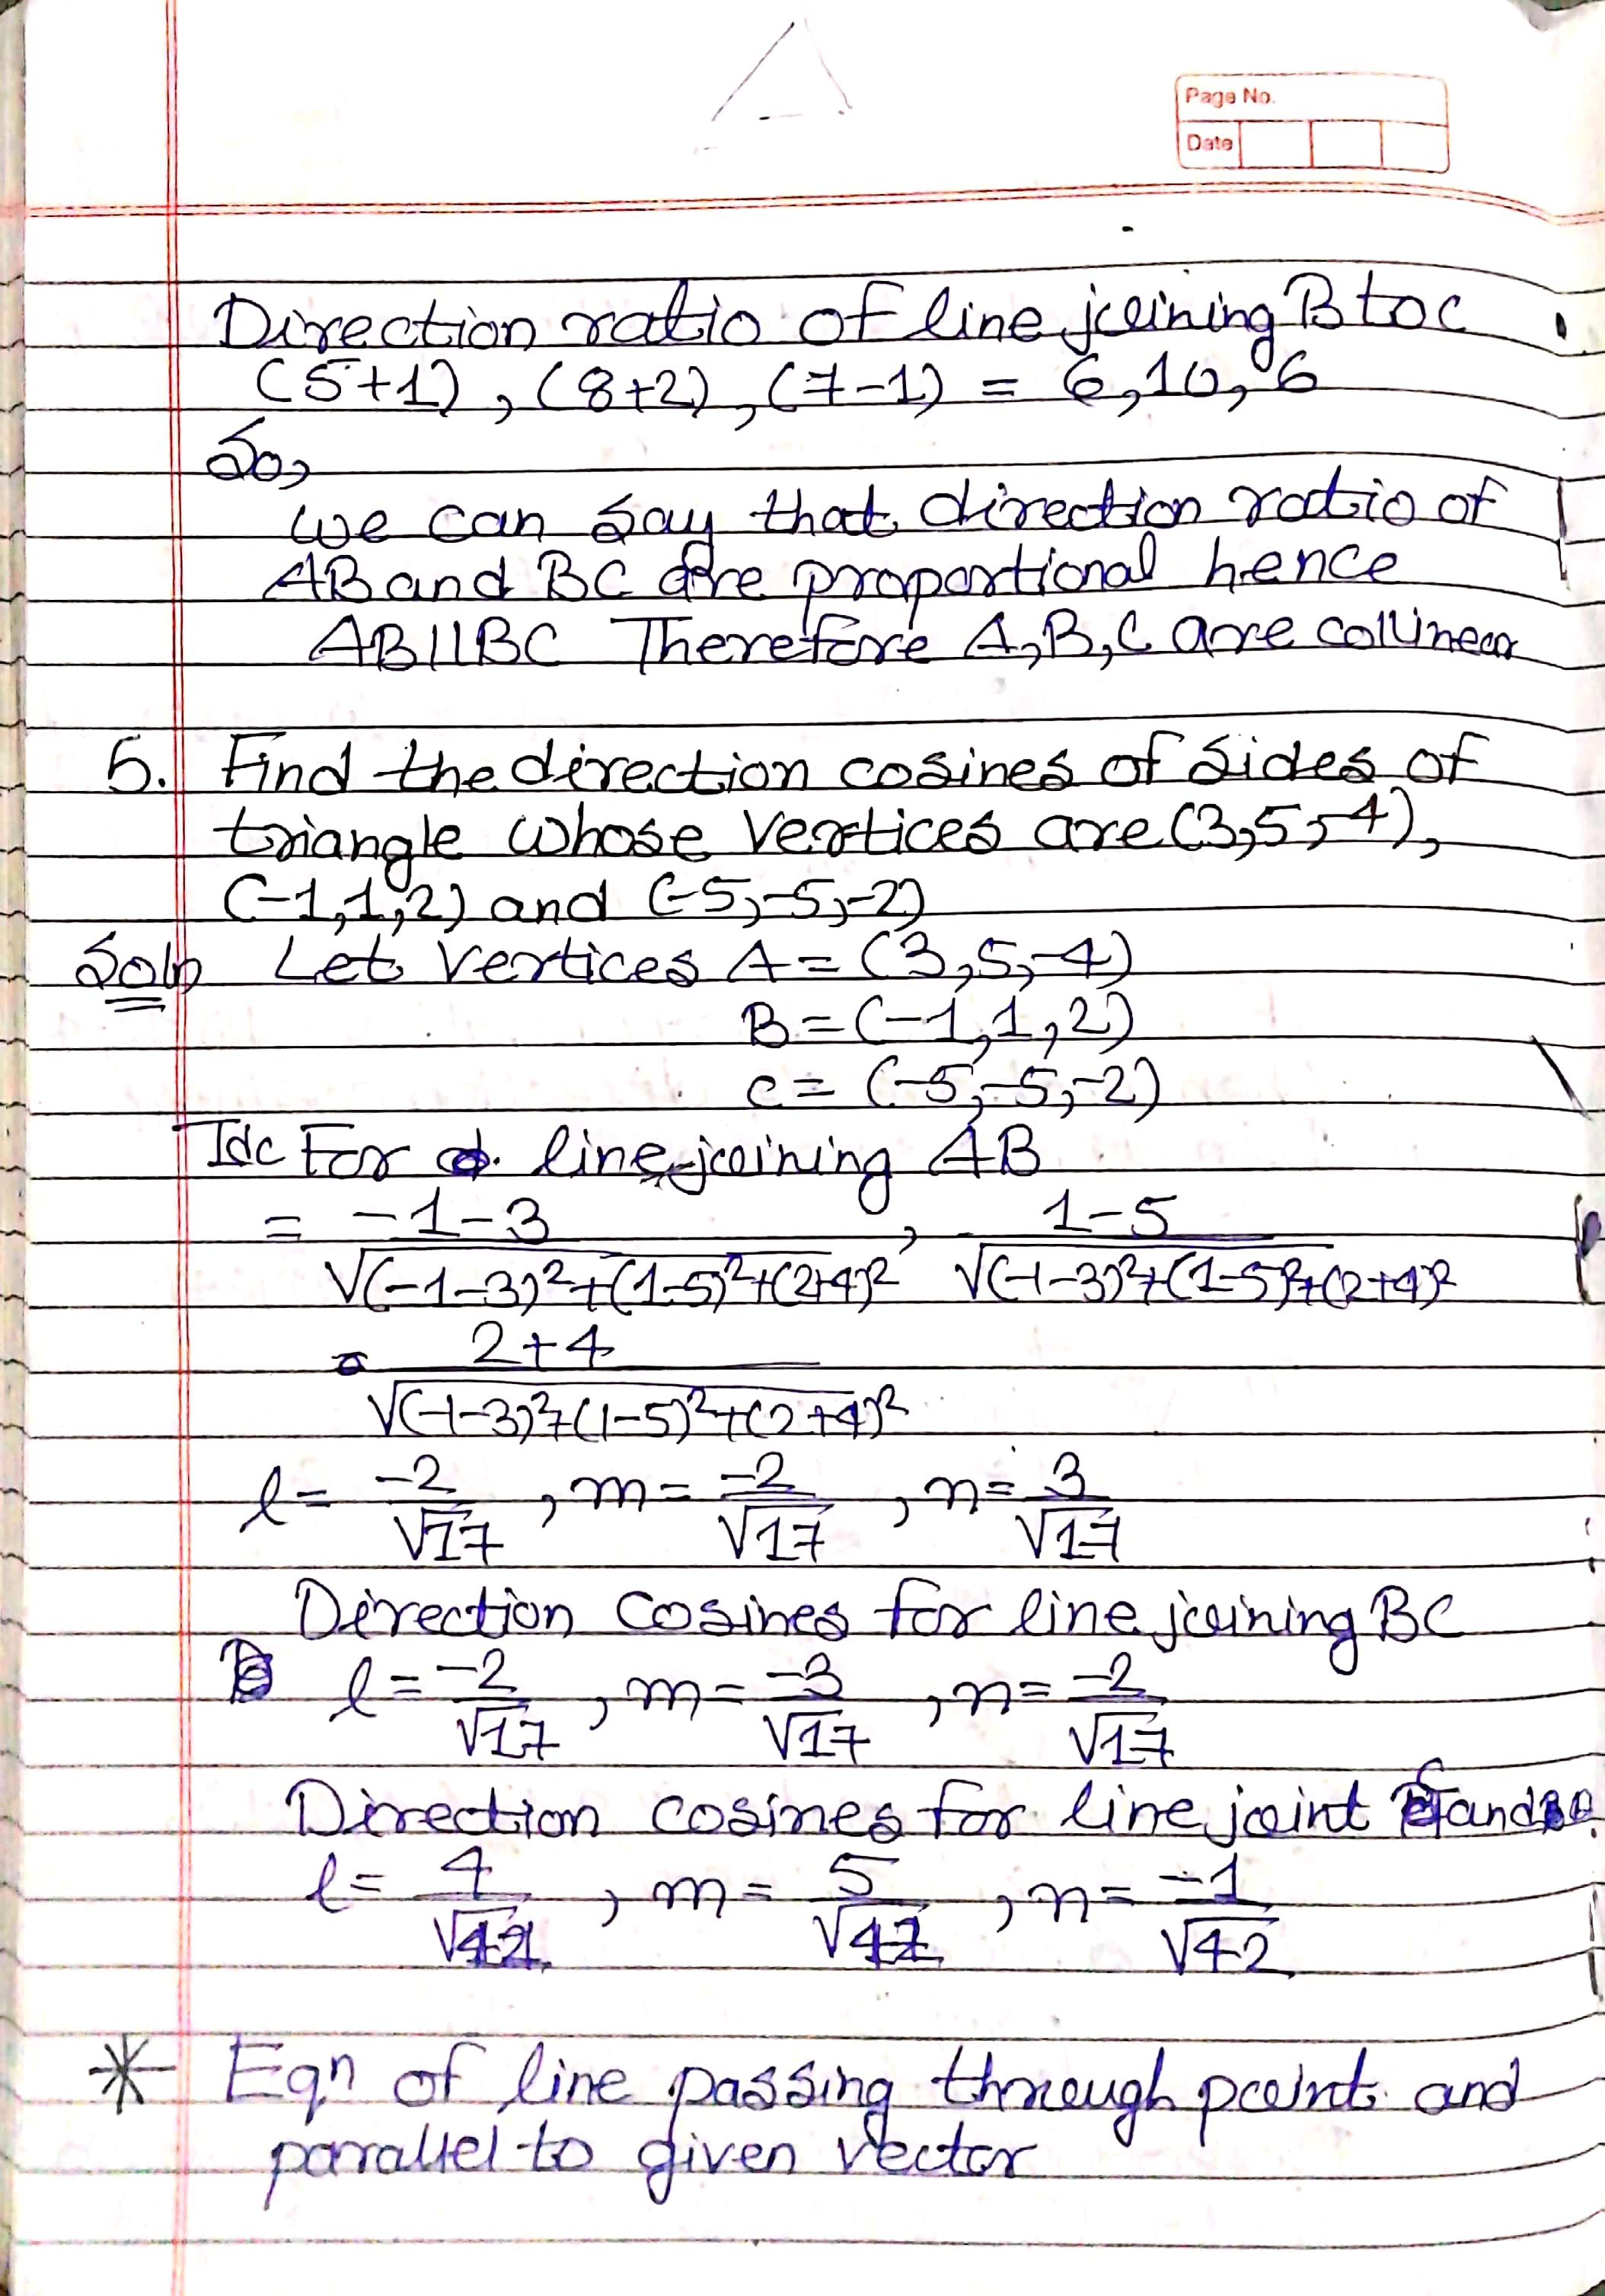 Page No.
Date
Direction ratio of line joining B to C
(5+1), (8+2), (7-1) = 6, 10, 6
So,
we can say that direction ratio of
AB and BC are proportional hence
AB||BC Therefore A, B, C are collinear
5. Find the direction cosines of sides of
triangle whose vertices are (3,5,-4),
(-1,1,2) and (-5,-5,-2)
Soln Let vertices A = (3,5,-4)
B = (-1,1,2)
C = (-5,-5,-2)
For line joining AB
= -1-3 / √(-1-3)²+(1-5)²+(2+4)² , 1-5 / √(-1-3)²+(1-5)²+(2+4)²
2+4 / √(-1-3)²+(1-5)²+(2+4)²
l = -2/√17 , m = -2/√17 , n = 3/√17
Direction cosines for line joining BC
l = -2/√17 , m = -3/√17 , n = -2/√17
Direction cosines for line joint and
l = 4/√42 , m = 5/√42 , n = -1/√42
* Eqn of line passing through point and
parallel to given vector